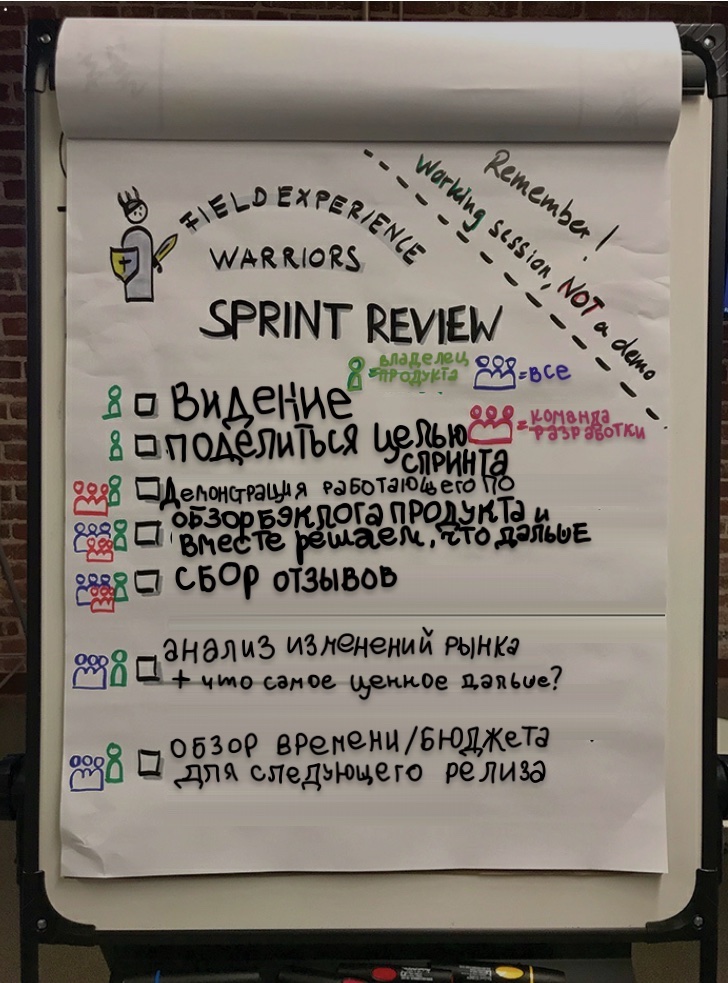 Remember!
Working session, NOT a demo
FIELD EXPERIENCE
WARRIORS
SPRINT REVIEW
= владелец
продукта
= все
= команда
разработки
Видение
поделиться целью
спринта
Демонстрация работающего ПО
обзор бэклога продукта и
вместе решаем, что дальше
сбор отзывов
анализ изменений рынка
+ что самое ценное дальше?
обзор времени/бюджета
для следующего релиза